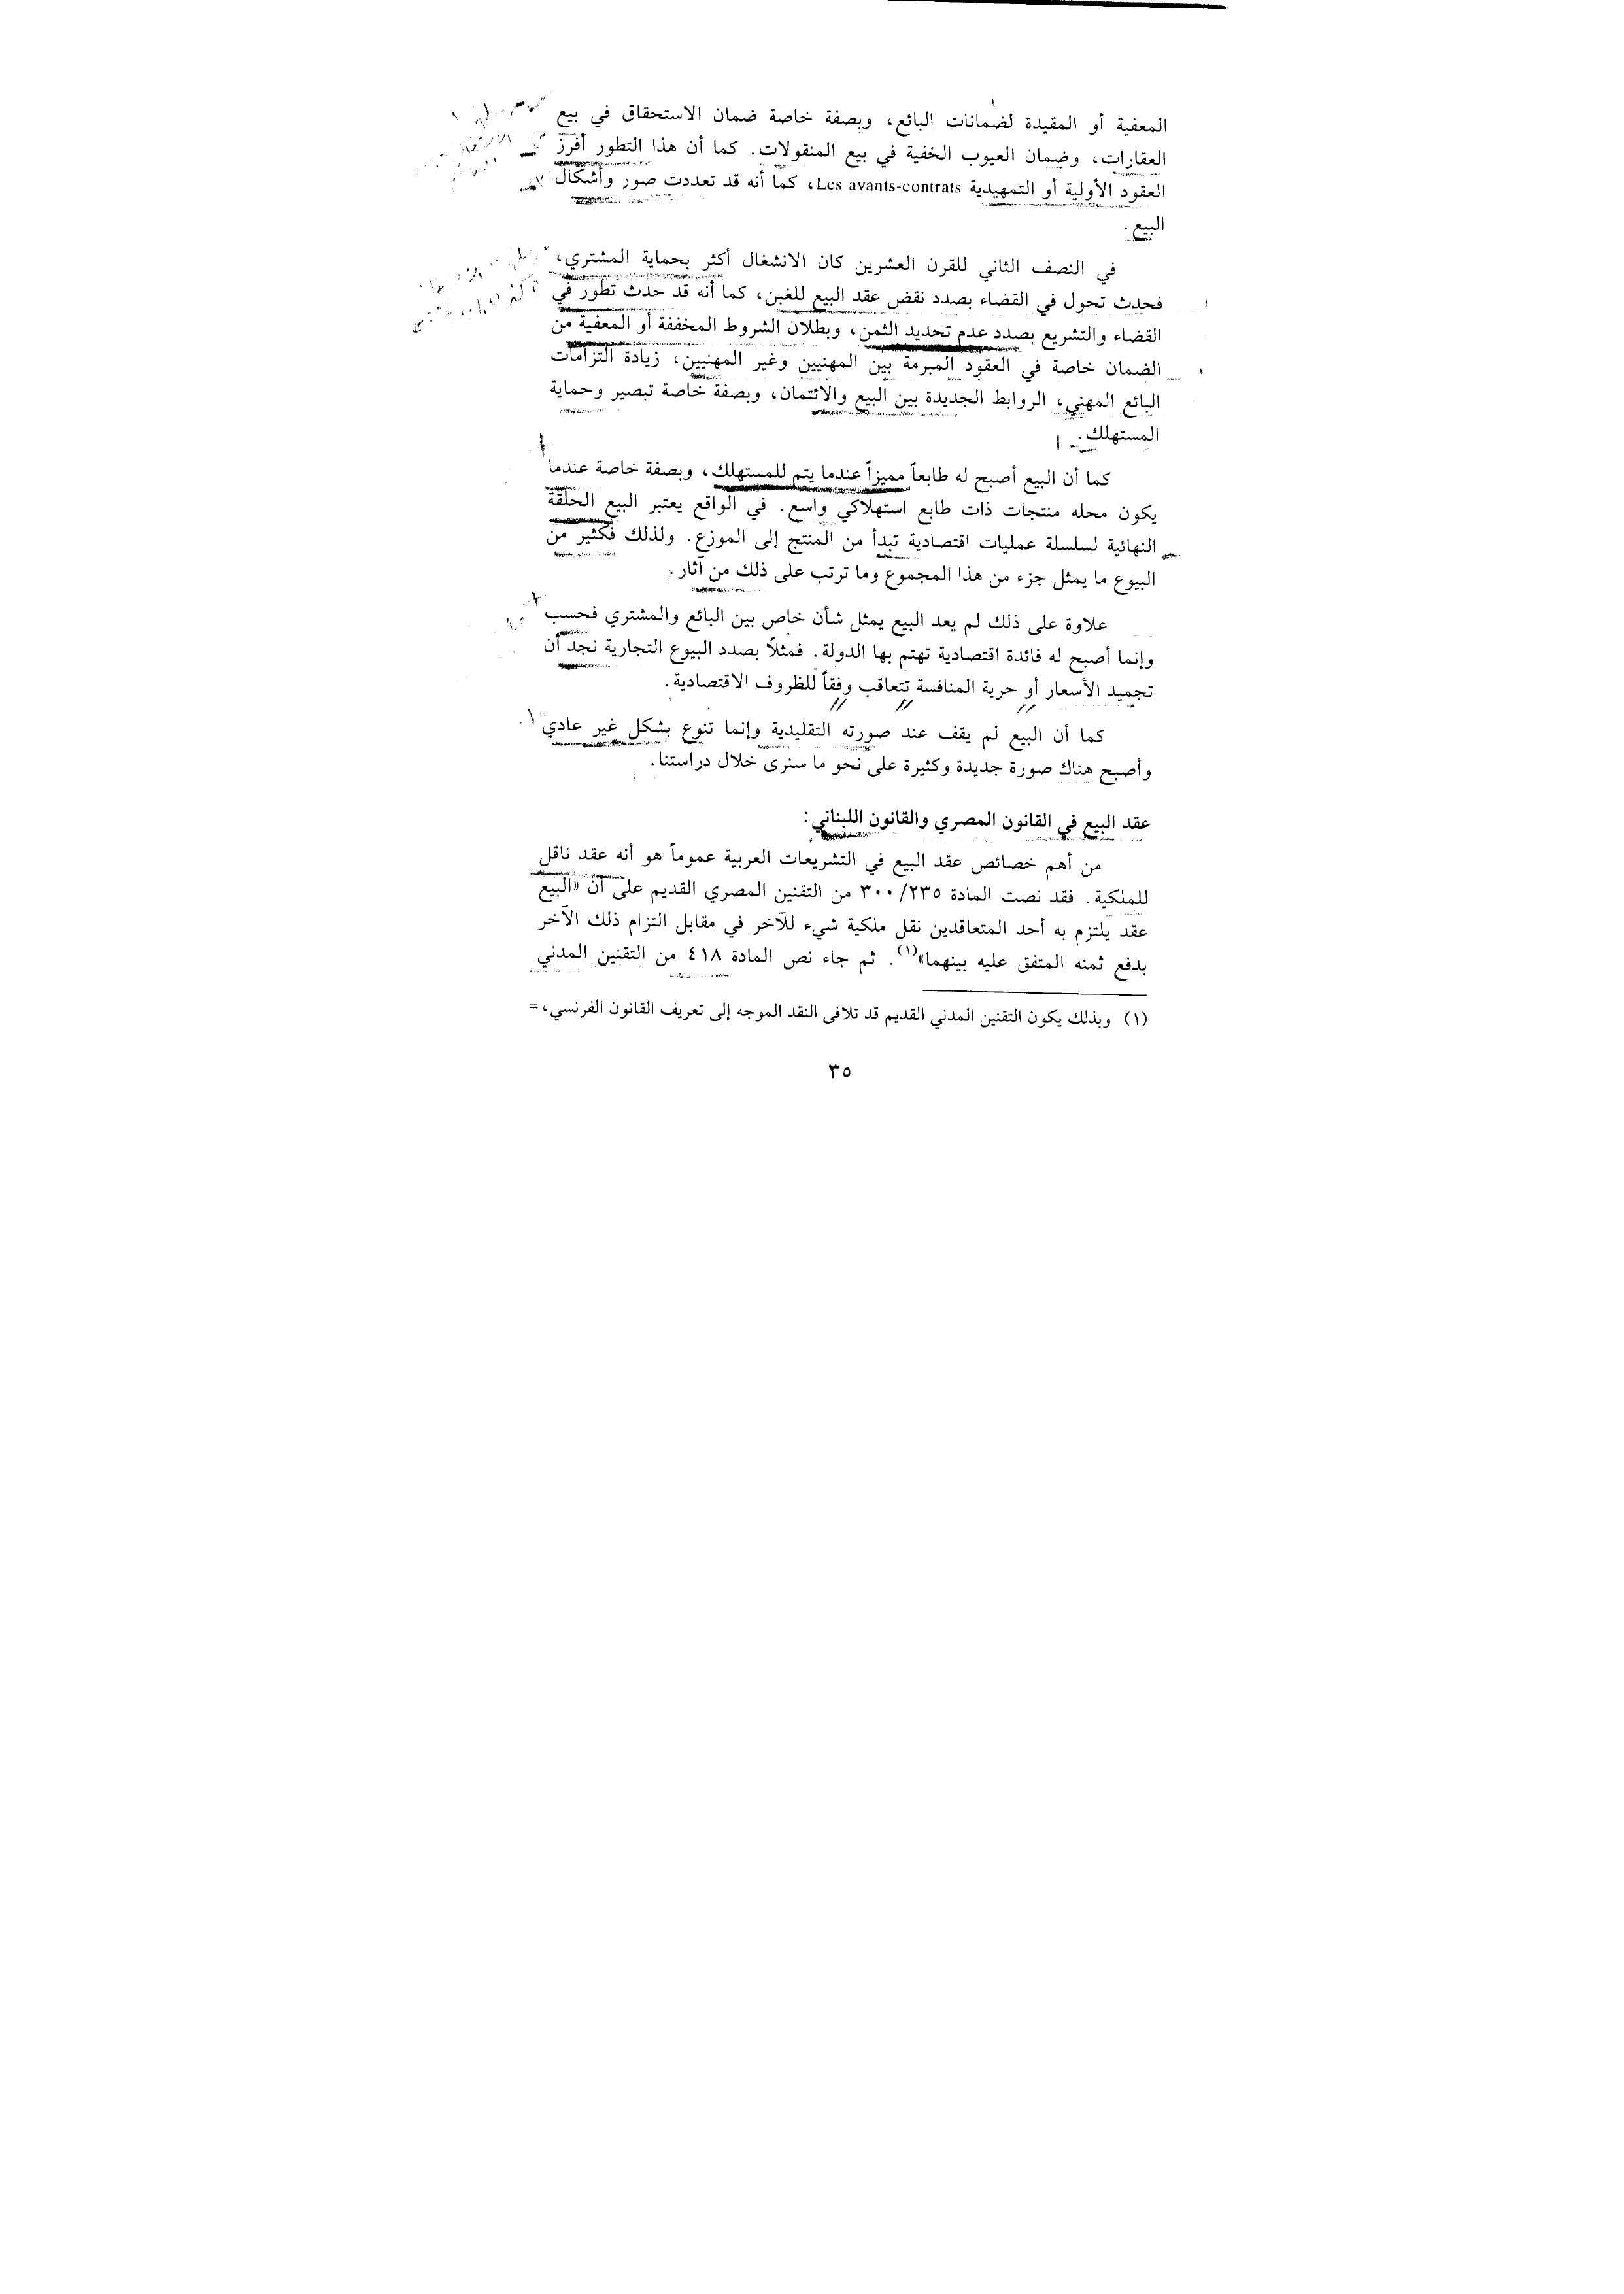 المعفية أو المقيدة لضمانات البائع، وبصفة خاصة ضمان الاستحقاق في بيع
العقارات، وضمان العيوب الخفية في بيع المنقولات. كما أن هذا التطور أفرز
العقود الأولية أو التمهيدية Les avants-contrats، كما أنه قد تعددت صور وأشكال
البيع.
في النصف الثاني للقرن العشرين كان الانشغال أكثر بحماية المشتري،
فحدث تحول في القضاء بصدد نقض عقد البيع للغبن، كما أنه قد حدث تطور في
القضاء والتشريع بصدد عدم تحديد الثمن، وبطلان الشروط المخففة أو المعفية من
الضمان خاصة في العقود المبرمة بين المهنيين وغير المهنيين، زيادة التزامات
البائع المهني، الروابط الجديدة بين البيع والائتمان، وبصفة خاصة تبصير وحماية
المستهلك.
كما أن البيع أصبح له طابعاً مميزاً عندما يتم للمستهلك، وبصفة خاصة عندما
يكون محله منتجات ذات طابع استهلاكي واسع. في الواقع يعتبر البيع الحلقة
النهائية لسلسلة عمليات اقتصادية تبدأ من المنتج إلى الموزع. ولذلك فكثير من
البيوع ما يمثل جزء من هذا المجموع وما ترتب على ذلك من آثار.
علاوة على ذلك لم يعد البيع يمثل شأن خاص بين البائع والمشتري فحسب
وإنما أصبح له فائدة اقتصادية تهتم بها الدولة. فمثلاً بصدد البيوع التجارية نجد أن
تجميد الأسعار أو حرية المنافسة تتعاقب وفقاً للظروف الاقتصادية.
كما أن البيع لم يقف عند صورته التقليدية وإنما تنوع بشكل غير عادي
وأصبح هناك صورة جديدة وكثيرة على نحو ما سنرى خلال دراستنا.
عقد البيع في القانون المصري والقانون اللبناني:
من أهم خصائص عقد البيع في التشريعات العربية عموماً هو أنه عقد ناقل
للملكية. فقد نصت المادة ٣٠٠/٢٣٥ من التقنين المصري القديم على أن «البيع
عقد يلتزم به أحد المتعاقدين نقل ملكية شيء للآخر في مقابل التزام ذلك الآخر
بدفع ثمنه المتفق عليه بينهما»(١). ثم جاء نص المادة ٤١٨ من التقنين المدني
(١) وبذلك يكون التقنين المدني القديم قد تلافى النقد الموجه إلى تعريف القانون الفرنسي، =
٣٥